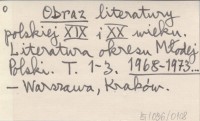 Obraz literatury
polskiej XIX i XX wieku.
Literatura okresu Młodej
Polski. T. 1-3. 1968-1973...
– Warszawa, Kraków.